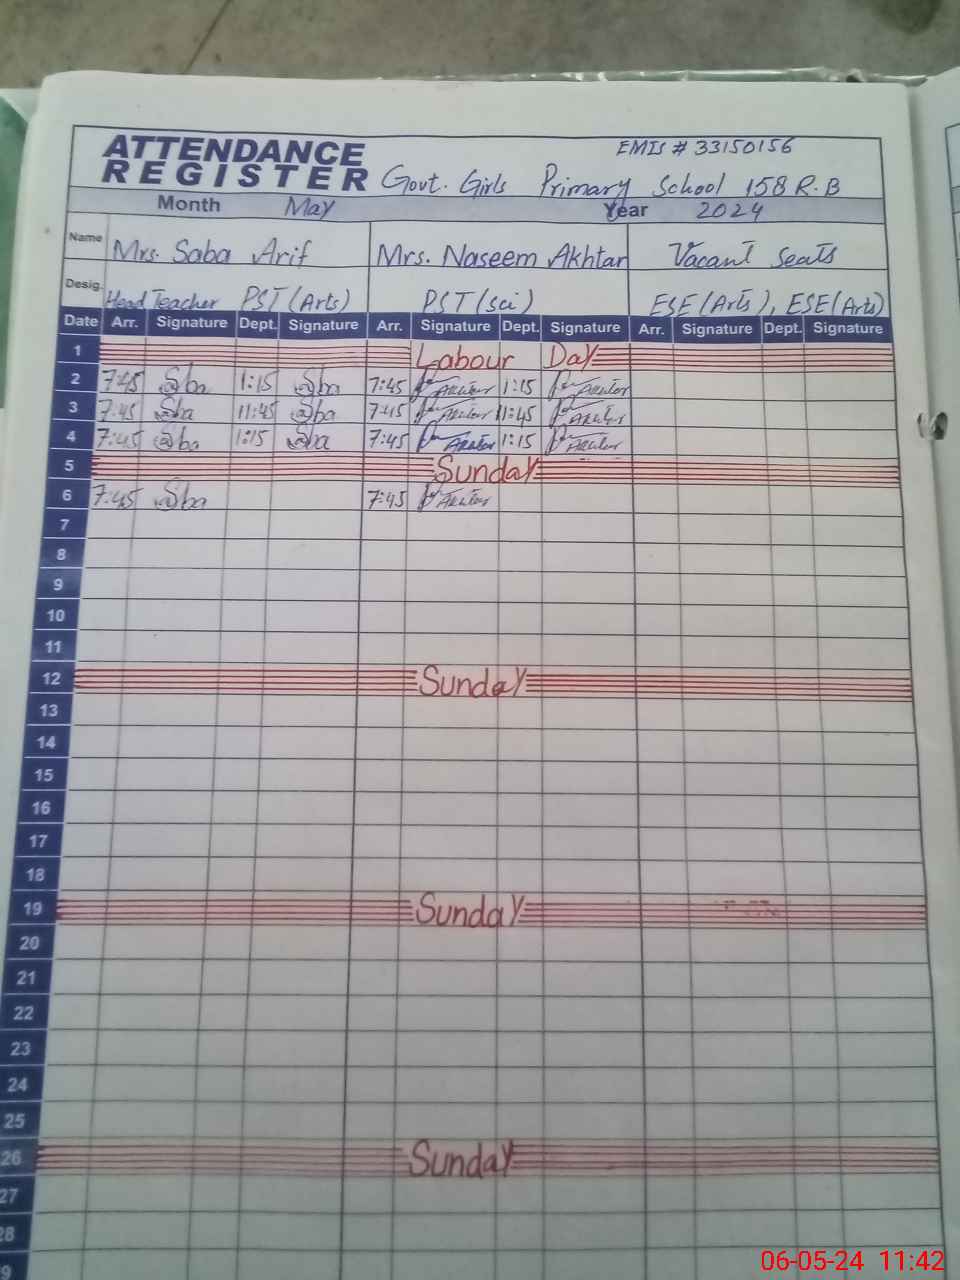 ATTENDANCE REGISTER
EMIS # 33150156
Govt. Girls Primary School 158 R.B
Month May Year 2024
Name Mrs. Saba Arif Mrs. Naseem Akhtar Vacant Seats
Desig. Head Teacher PST (Arts) PST (Sci) ESE (Arts), ESE (Arts)
Date Arr. Signature Dept. Signature Arr. Signature Dept. Signature Arr. Signature Dept. Signature
1 Labour Day
2 7:45 Saba 1:15 Saba 7:45 Akhtar 1:15 Akhtar
3 7:45 Saba 11:45 Saba 7:45 Akhtar 11:45 Akhtar
4 7:45 Saba 1:15 Saba 7:45 Akhtar 1:15 Akhtar
5 Sunday
6 7:45 Saba 7:45 Akhtar
7
8
9
10
11
12 Sunday
13
14
15
16
17
18
19 Sunday
20
21
22
23
24
25
26 Sunday
27
28
06-05-24 11:42